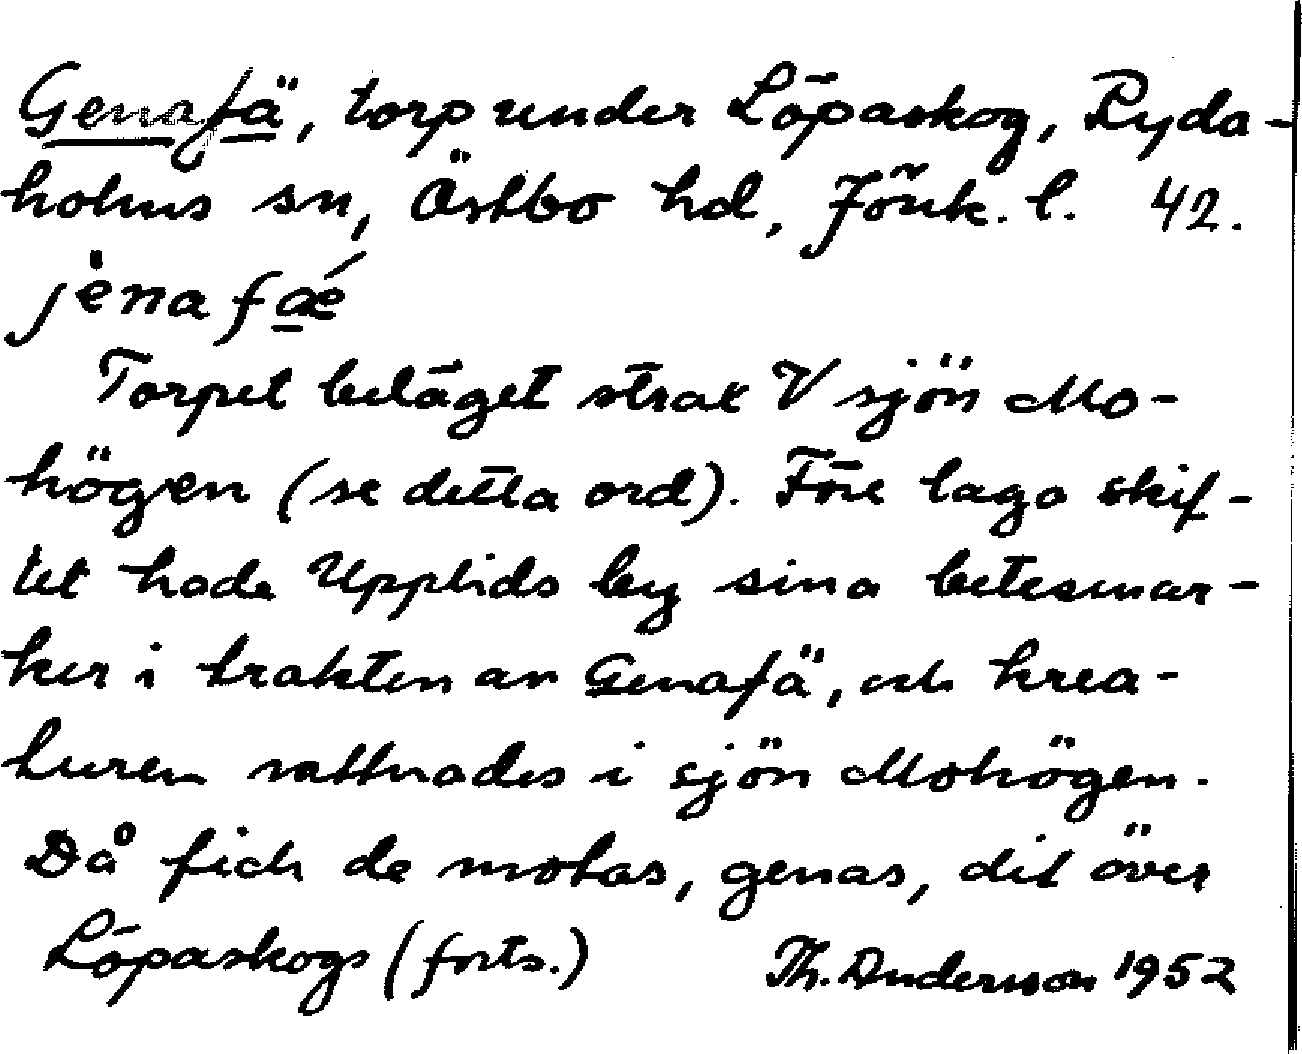 Genafä, torp under Löpaskog, Ryda-
holms sn, Östbo hd, Jönk. l. 42.
jènafǽ
Torpet beläget strax V sjön Mo-
högen (se detta ord). Före laga skif-
tet hade Upplids by sina betesmar-
ker i trakten av Genafä, och krea-
turen vattnades i sjön Mohögen.
Då fick de motas, genas, dit över
Löpaskogs (forts.) Th. Anderson 1952